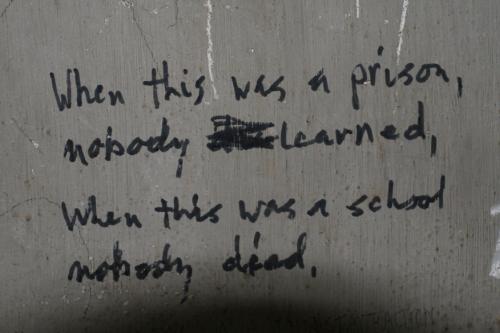 When this was a prison,
nobody learned,
When this was a school
nobody died.